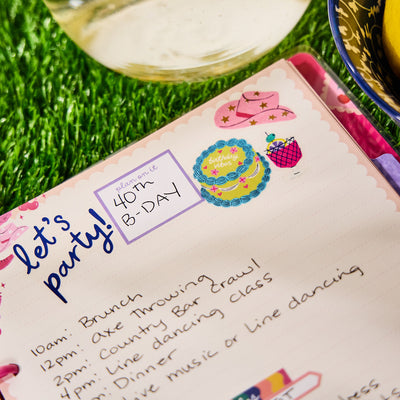 let's
party!
plan on it
40TH
B-DAY
birthday
10am: Brunch
12pm: axe Throwing
2pm: Country Bar Crawl
4pm: Line dancing class
pm: Dinner
live music or line dancing